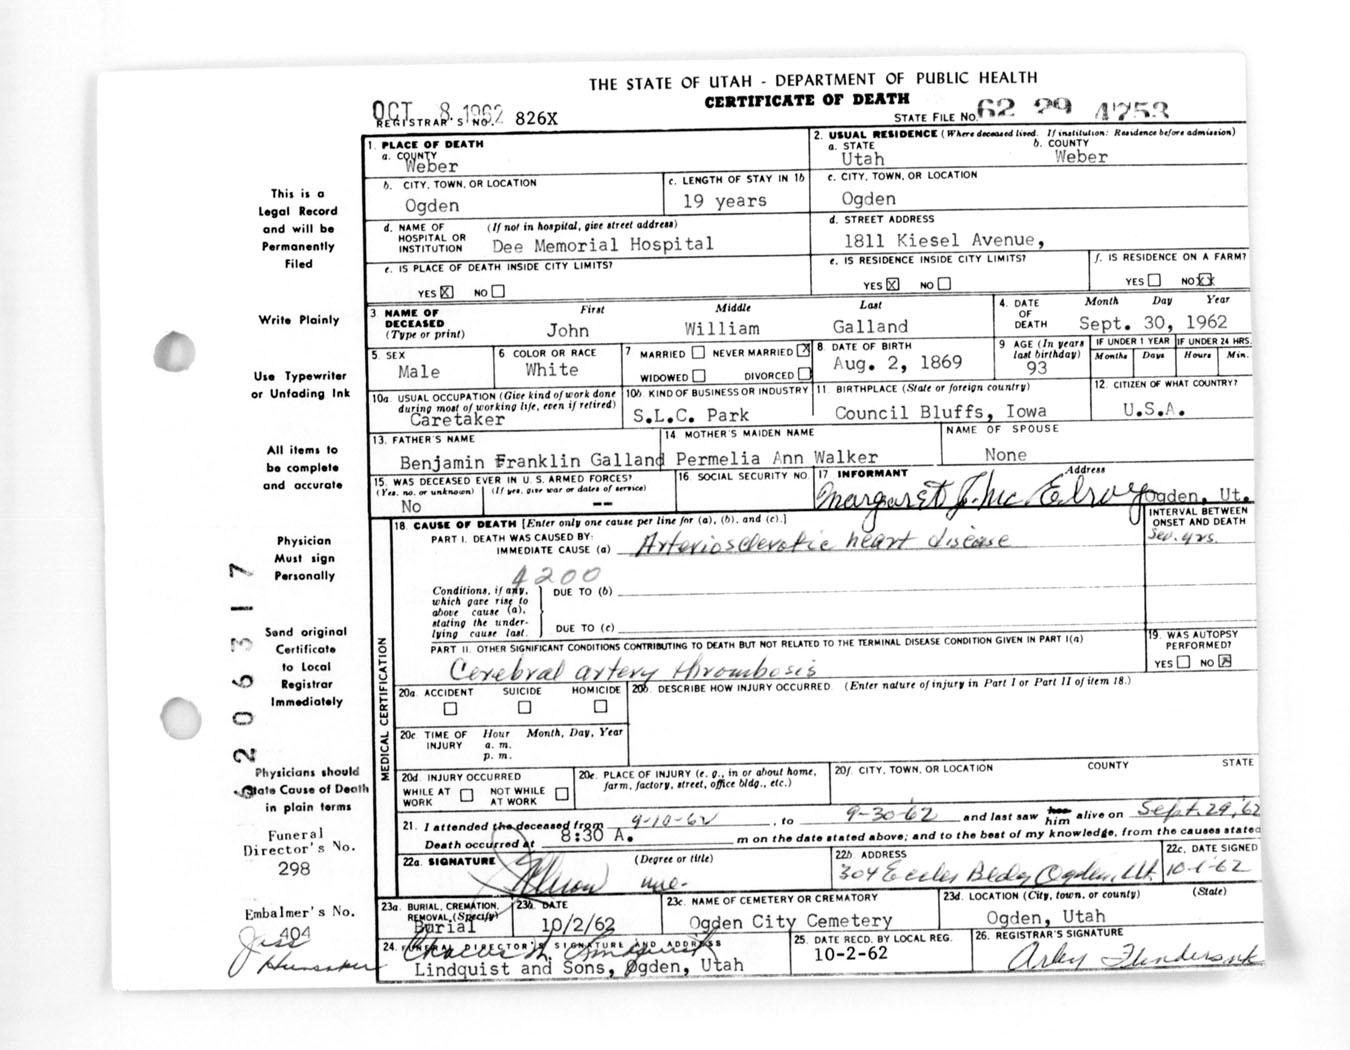 THE STATE OF UTAH - DEPARTMENT OF PUBLIC HEALTH
CERTIFICATE OF DEATH
OCT 8 1962
REGISTRAR'S NO. 826X
STATE FILE NO. 62 29 4753
This is a
Legal Record
and will be
Permanently
Filed
Write Plainly
Use Typewriter
or Unfading Ink
All items to
be complete
and accurate
Physician
Must sign
Personally
Send original
Certificate
to Local
Registrar
Immediately
Physicians should
State Cause of Death
in plain terms
Funeral
Director's No.
298
Embalmer's No.
404
Jess
Hunsaker
206317
1. PLACE OF DEATH
a. COUNTY
Weber
2. USUAL RESIDENCE (Where deceased lived. If institution: Residence before admission)
a. STATE
Utah
b. COUNTY
Weber
b. CITY, TOWN, OR LOCATION
Ogden
c. LENGTH OF STAY IN 1b
19 years
c. CITY, TOWN, OR LOCATION
Ogden
d. NAME OF HOSPITAL OR INSTITUTION
(If not in hospital, give street address)
Dee Memorial Hospital
d. STREET ADDRESS
1811 Kiesel Avenue,
e. IS PLACE OF DEATH INSIDE CITY LIMITS?
YES X NO
e. IS RESIDENCE INSIDE CITY LIMITS?
YES X NO
f. IS RESIDENCE ON A FARM?
YES NO X
3 NAME OF DECEASED
(Type or print)
First Middle Last
John William Galland
4. DATE OF DEATH
Month Day Year
Sept. 30, 1962
5. SEX
Male
6 COLOR OR RACE
White
7 MARRIED NEVER MARRIED X
WIDOWED DIVORCED
8. DATE OF BIRTH
Aug. 2, 1869
9 AGE (In years last birthday)
93
IF UNDER 1 YEAR
Months Days
IF UNDER 24 HRS.
Hours Min.
10a. USUAL OCCUPATION (Give kind of work done
during most of working life, even if retired)
Caretaker
10b KIND OF BUSINESS OR INDUSTRY
S.L.C. Park
11 BIRTHPLACE (State or foreign country)
Council Bluffs, Iowa
12. CITIZEN OF WHAT COUNTRY?
U.S.A.
13. FATHER'S NAME
Benjamin Franklin Galland
14 MOTHER'S MAIDEN NAME
Permelia Ann Walker
NAME OF SPOUSE
None
15. WAS DECEASED EVER IN U.S. ARMED FORCES?
(Yes, no, or unknown) (If yes, give war or dates of service)
No --
16. SOCIAL SECURITY NO.
17 INFORMANT Address
Margaret J. McElroy Ogden, Ut.
18. CAUSE OF DEATH [Enter only one cause per line for (a), (b), and (c).]
PART I. DEATH WAS CAUSED BY:
IMMEDIATE CAUSE (a) Arteriosclerotic heart disease
INTERVAL BETWEEN
ONSET AND DEATH
Sev. yrs.
4200
Conditions, if any,
which gave rise to
above cause (a),
stating the under-
lying cause last.
DUE TO (b)
DUE TO (c)
PART II. OTHER SIGNIFICANT CONDITIONS CONTRIBUTING TO DEATH BUT NOT RELATED TO THE TERMINAL DISEASE CONDITION GIVEN IN PART I(a)
Cerebral artery thrombosis
19. WAS AUTOPSY
PERFORMED?
YES NO X
MEDICAL CERTIFICATION
20a. ACCIDENT SUICIDE HOMICIDE
20b. DESCRIBE HOW INJURY OCCURRED. (Enter nature of injury in Part I or Part II of item 18.)
20c. TIME OF INJURY
Hour Month, Day, Year
a. m.
p. m.
20d. INJURY OCCURRED
WHILE AT WORK NOT WHILE AT WORK
20e. PLACE OF INJURY (e. g., in or about home,
farm, factory, street, office bldg., etc.)
20f. CITY, TOWN, OR LOCATION COUNTY STATE
21. I attended the deceased from 9-10-62, to 9-30-62 and last saw him alive on Sept. 29, '62
Death occurred at 8:30 A. m on the date stated above; and to the best of my knowledge, from the causes stated
22a. SIGNATURE (Degree or title)
22b. ADDRESS
304 Eccles Bldg Ogden, Ut.
22c. DATE SIGNED
10-1-62
23a. BURIAL, CREMATION,
REMOVAL (Specify)
Burial
23b. DATE
10/2/62
23c. NAME OF CEMETERY OR CREMATORY
Ogden City Cemetery
23d. LOCATION (City, town, or county) (State)
Ogden, Utah
24. FUNERAL DIRECTOR'S SIGNATURE AND ADDRESS
Lindquist and Sons, Ogden, Utah
25. DATE RECD. BY LOCAL REG.
10-2-62
26. REGISTRAR'S SIGNATURE